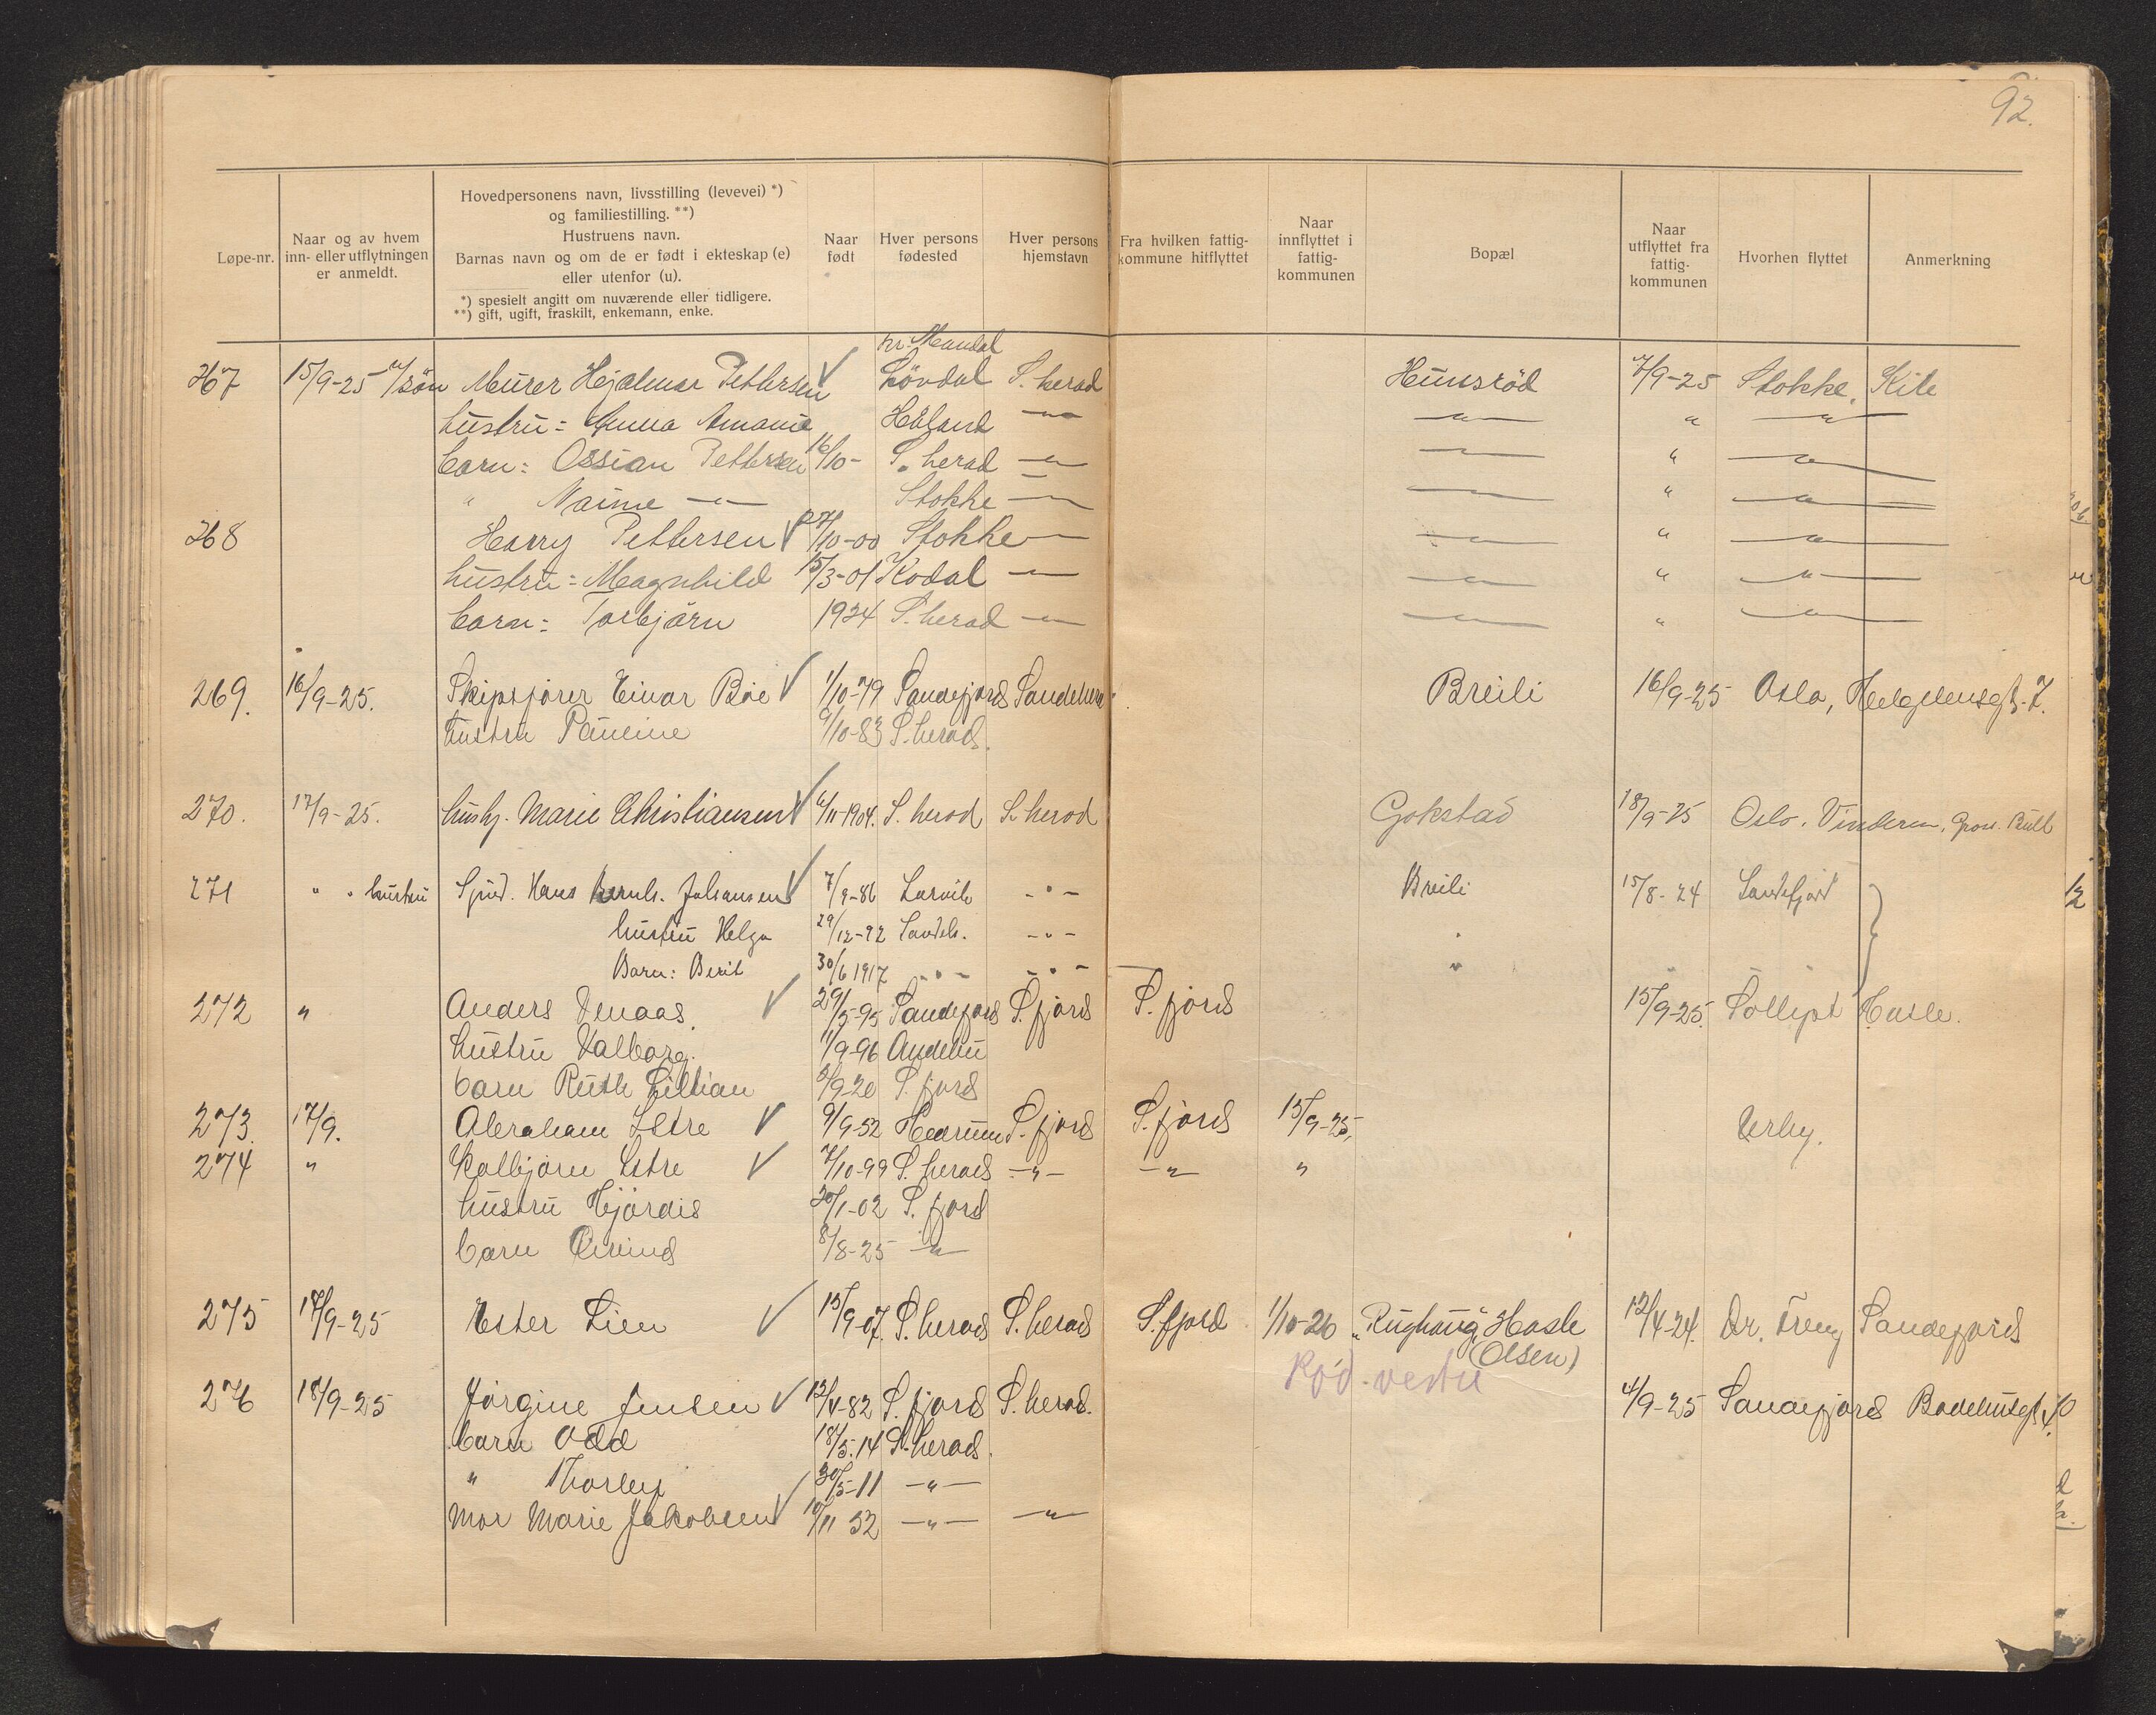 92.
Løpe-nr.
Naar og av hvem
inn- eller utflytningen
er anmeldt.
Hovedpersonens navn, livsstilling (levevei) *)
og familiestilling. **)
Hustruens navn.
Barnas navn og om de er født i ekteskap (e)
eller utenfor (u).
*) spesielt angitt om nuværende eller tidligere.
**) gift, ugift, fraskilt, enkemann, enke.
Naar
født
Hver persons
fødested
Hver persons
hjemstavn
Fra hvilken fattig-
kommune hitflyttet
Naar
innflyttet i
fattig-
kommunen
Bopæl
Naar
utflyttet fra
fattig-
kommunen
Hvorhen flyttet
Anmerkning
Mandal
267 15/9-25 Murer Hjalmar Pettersen S. herad Hunsröd 7/9-25 Stokke.
hustru: Anna Amanie " " " "
barn: Ossian Pettersen 16/10- S. herad " " " "
" " Stokke " " " "
268 Harry Pettersen 27/10-00 Stokke " " " "
hustru: Magnhild 15/3-01 Kodal " " " "
barn: Torbjörn 1924 S. herad " " " "
269. 16/9-25. Skipsfører Einar Bøe 1/10-79 Sandefjord Sandeherad Breili 16/9-25 Oslo, 7.
hustru Pauline 9/10-83 S. herad.
270. 17/9-25. Marie Christiansen 6/11-1904. S. herad S. herad Gokstad 18/9-25 Oslo. Vinderen,
271 " " hustru Hans Johansen 7/9-86 Larvik - " - Breili 15/8-24 Sandefjord
hustru Helga 29/12-92 Sandeh. - " - "
Barn: Berit 30/6 1917 - " - - " - "
272 " Anders Venaas 29/5-95 Sandefjord S. fjord S. fjord 15/9-25. Hasle.
hustru Valborg. 11/9-96 Andebu
barn Ruth Lillian 3/9-20 S. fjord
273. 17/9. Abraham Istre 9/9-52 Hedrum S. fjord S. fjord 15/9-25, Virby.
274 " Kolbjörn Istre 7/10-99 S. herad - " - - " - "
hustru Hjördis 20/1-02 S. fjord
barn Öivind 8/8-25 - " -
275 17/9-25 Ester Lien 15/9-07. S. herad S. herad S. fjord 1/10-26 "Rughaug" Hasle 12/4-24. Dr. Sandefjord
(Olsen)
276 18/9-25 Jörgine Jensen 12/4-82 S. fjord S. herad. Rød vestre 4/9-25 Sandefjord Badehusgt. 40
barn Odd 18/5-14 S. herad.
" Thorleif 30/5-11 - " -
Mor Marie Jakobsen 10/11 52 - " - - " -